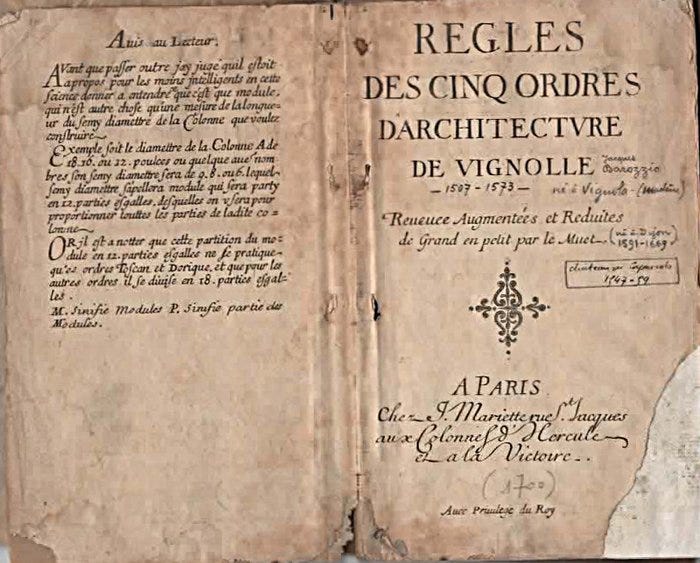 Auis au Lecteur.
AVant que passer outre jay jugé quil estoit
apropos pour les moins jntelligents en cette
science donner a antendre que c'est que module,
qui n'est autre chose qu'une mesure de la longue-
ur du semy diamettre de la Colonne que voulez
construire
Exemple soit le diamettre de la Colonne A de
18.16. ou 12. poulces ou quelque aue nom-
bres son semy diamettre sera de 9.8. ou 6. lequel
semy diamettre sapellera module qui sera party
en 12. parties esgalles, desquelles on v sera pour
proportionner touttes les parties de ladite co-
lonne
OR jl est a notter que cette partition du mo-
dule en 12. parties esgalles ne se pratique
qu'es ordres Toscan et Dorique, et que pour les
autres ordres il se diuise en 18. parties esgal-
les.
M. Sinifie Modules P. Sinifie partie des
Modules.
REGLES
DES CINQ ORDRES
D'ARCHITECTVRE
DE VIGNOLLE Jacques Barozzio
- 1507 - 1573 - né à Vignola - (Modène)
Reueuee Augmenteés et Reduites
de Grand en petit par le Muet. (né à Dijon
1591-1669)
château de
1547-59
A PARIS
Chez J. Mariette rue St. Jacques
aux Colonnes d'Hercule
et a la Victoire.
(1700)
Auec Priuilege du Roy